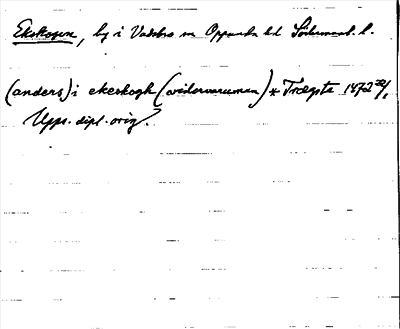 Ekskogen, by i Vadsbro sn Oppunda hd Södermanl. l.
(anders) i ekeskogh (widervaruman) * Træpsta 1472 22/1
Upps. dipl. orig.